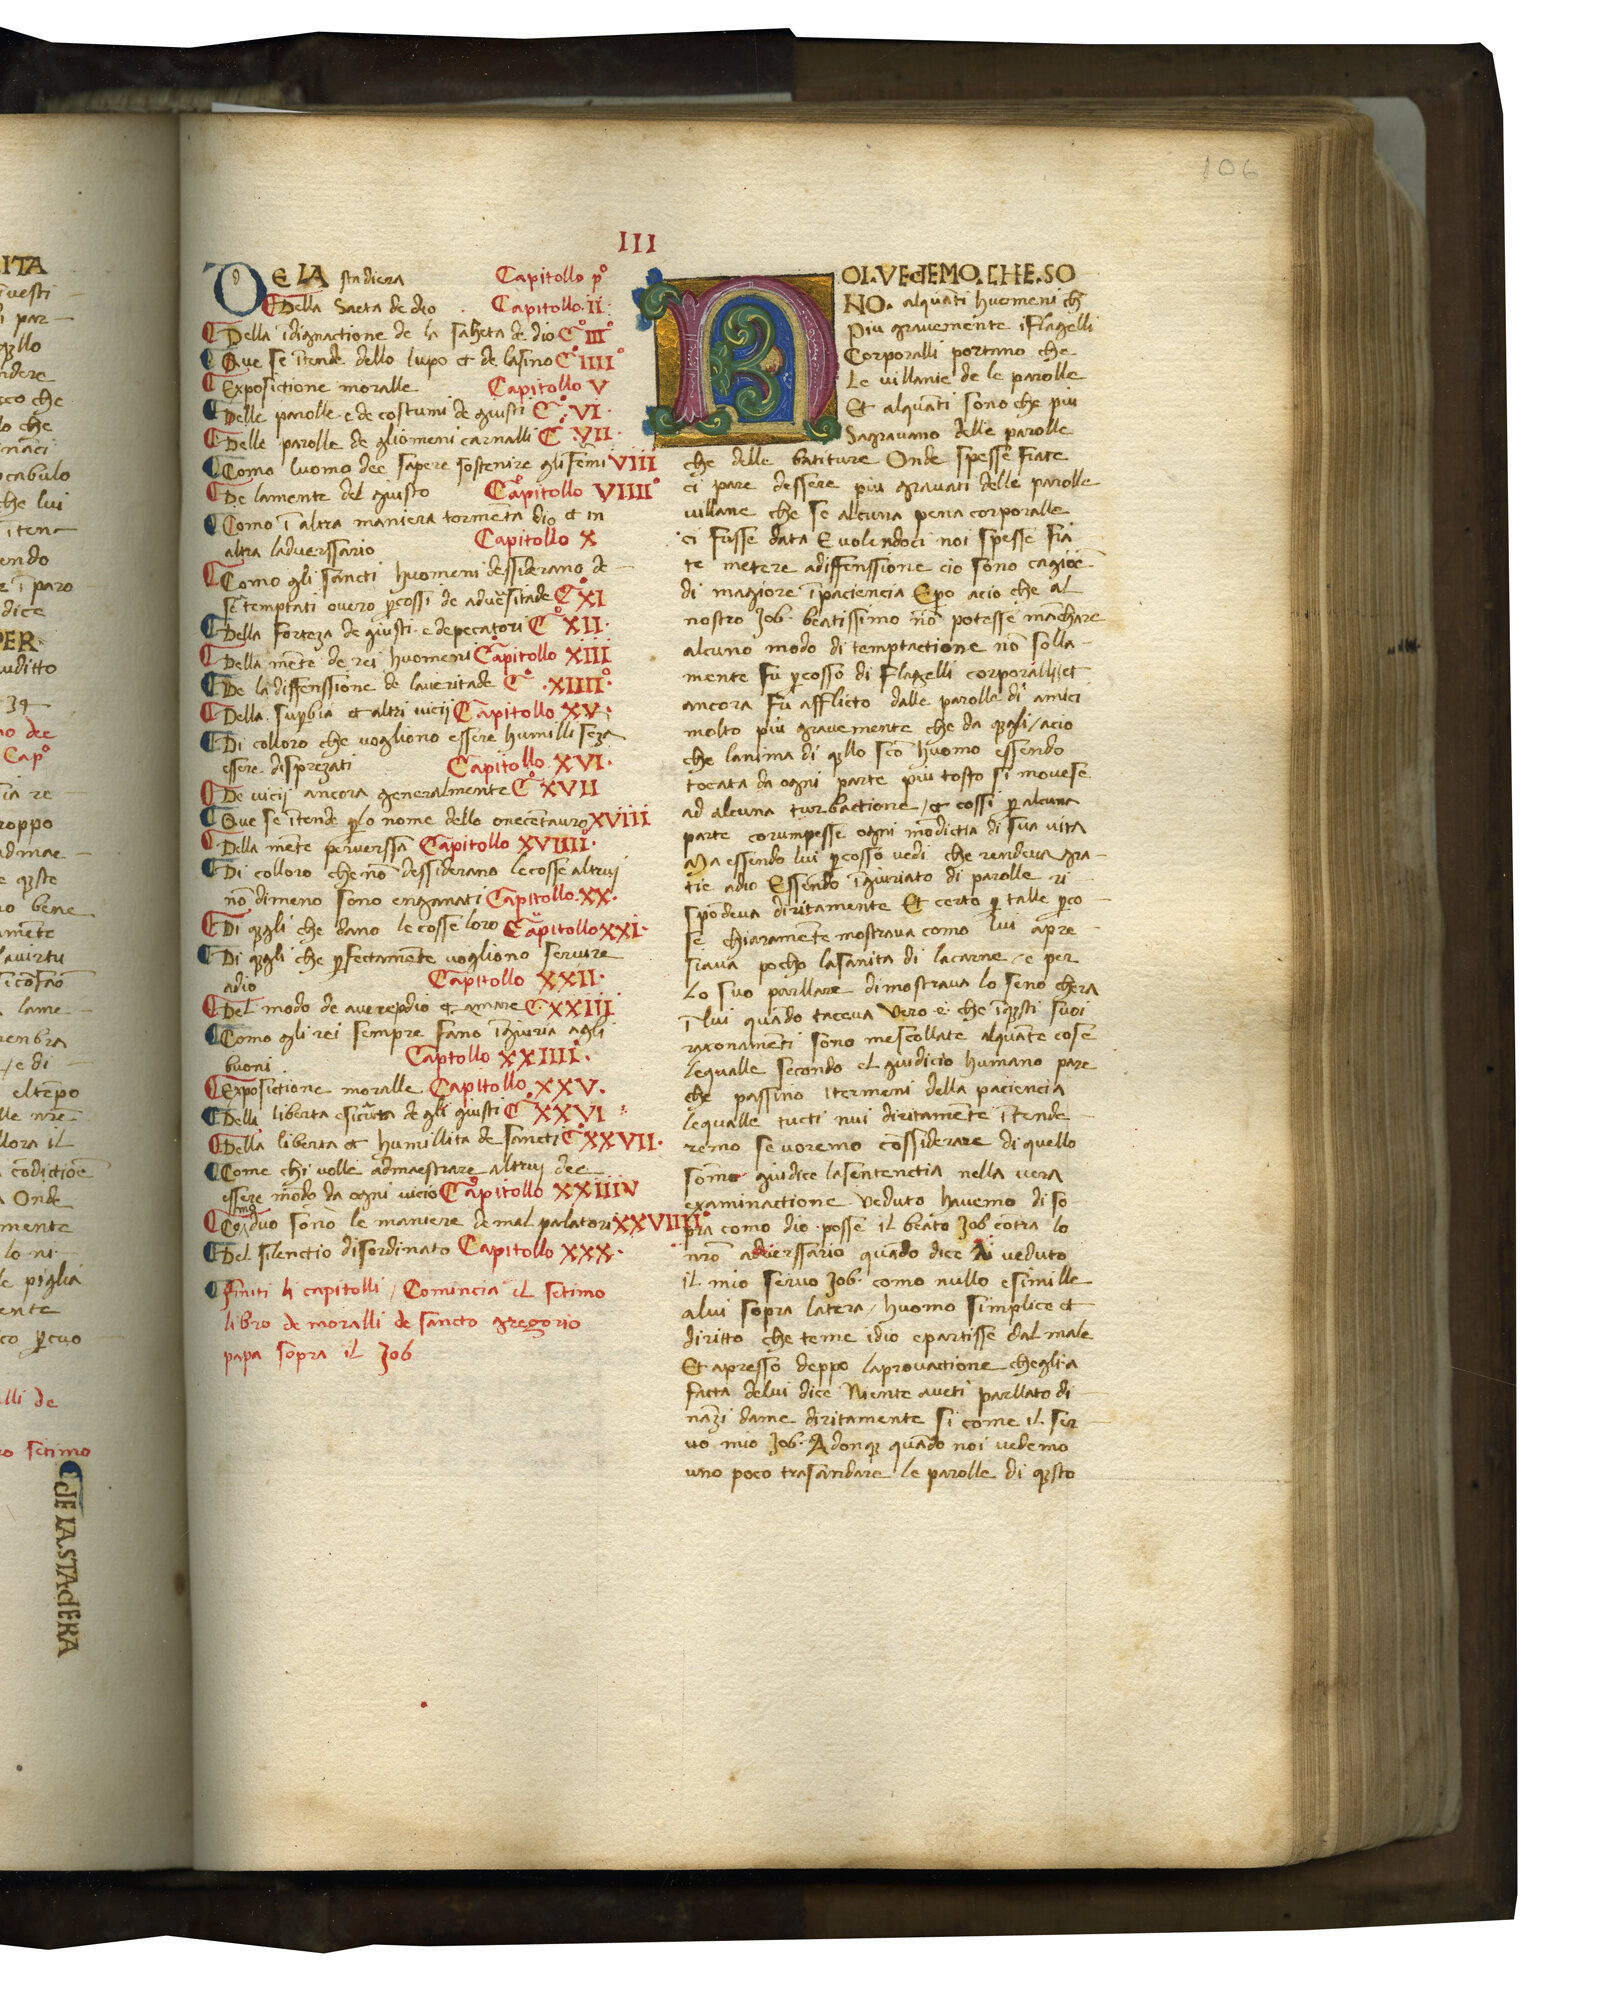 106
III
DE LA stadiera Capitollo pº
Della Saeta de dio Capitollo.II:
Della īdignactione de la saheta de dio Cº IIIº
Que se ītende dello lupo et de lasino Cº IIIIº
Exposictione moralle Capitollo V
Delle parolle e de costumi de giusti Cº.VI.
Delle parolle de gliomeni carnalli Cº.VII.
Como luomo dee sapere sostenire gli VIII
De lamente del giusto Capitollo VIIIIº
Como ī altra maniera tormēta dio et in
altra ladverssario Capitollo X
Como gli sancti huomeni dessiderano de
temptati overo ꝑcossi de adversitade Cº XI
Della forteza de giusti e depecatori Cº XII.
Della mēte de rei huomeni Capitollo XIII
De la diffenssione de laveritade Cº .XIIIIº.
Della suꝑbia et altri vicij Capitollo XV.
Di colloro che vogliono essere humilli seza
essere disprezati Capitollo XVI.
De vicij ancora generalmente Cº XVII
Que se ītende ꝑlo nome dello onecētauro XVIII
Della mēte perverssa Capitollo XVIIII.
Di colloro che nō dessiderano lecosse altruj
nōdimeno sono enganati Capitollo.XX.
Di q̄gli che dano lecosse loro Capitollo XXI.
Di q̄gli che ꝑfectamēte vogliono servire
adio Capitollo XXII.
Del modo de avere dio et amare C XXIII
Como gli rei sempre fano īguiria agli
buoni Captollo XXIIII.
Exposictione moralle Capitollo XXV.
Della liberta esicurta de gli giusti Cº XXVI
Della liberta et humillita de sancti Cº XXVII.
Come chi volle admaestrare altruj dee
essere mōdo da ogni vicio Capitollo XXIIIV
duo sono le maniere de mal parlatori XXVIIIIº
Del silenctio disordinato Capitollo XXX.
Finiti li capitolli / Comincia il setimo
libro de moralli de sancto gregorio
papa sopra il Job
NOI.VEdEMO.CHE.SO
NO. alquāti huomeni ch̄
Piu gravemente i flagelli
Corporalli portano che
Le villanie de le parolle
Et alquāti sono che piu
Sagravano delle parolle
che delle batiture Onde spesse fiate
ci pare dessere piu gravati delle parolle
villane che se alcuna pena corporalle
ci fusse data E volendoci noi spesse fia
te metere adiffenssione cio sono cagiōe
di magiore īpaciencia Eꝑo acio che al
nostro Job. beatissimo nō potesse māchare
alcuno modo di temptactione nō solla
mente fu ꝑcosso di flagelli corporalli et
ancora fu afflicto dalle parolle di amici
molto piu gravemente che da q̄gli / acio
che lanima di q̄llo scō huomo essendo
tocata da ogni parte piu tosto si movese
ad alcuna turbactione / et cossi ꝑ alcuna
parte corumpesse ogni mōdictia di sua vita
Ma essendo lui ꝑcosso vedi che rendeva gra
tie adio Essēdo īguriato di parolle ri
spōdeva diritamente Et certo ꝑ talle ꝑco
se chiaramēte mostrava como lui apre
siava pocho lasanita di lacarne / e per
Lo suo parllare dimostrava lo seno chera
ī lui quādo taceva Vero e. che īq̄sti suoi
raxonamēti sono mescollate alquāte cose
lequalle secondo el giudicio humano pare
che passino itermeni della paciencia
lequalle tucti nui diritamēte ītende
remo se voremo cōssiderare di quello
somo giudice lasentenctia nella vera
examinactione Veduto havemo di so
pra como dio posse il beato Job cōtra lo
nr̄o adverssario quādo dice Ai veduto
il mio servo Job. como nullo e simille
alui sopra latera / huomo simplice et
diritto che teme idio epartisse dal male
Et apresso deppo laprovactione chegli a
facta delui dice Niente aveti parllato di
nāzi dame diritamente si come il ser
vo mio Job. Adonq̄ quādo noi vedemo
uno poco trasandare le parolle di q̄sto
dE LA.STAdERA